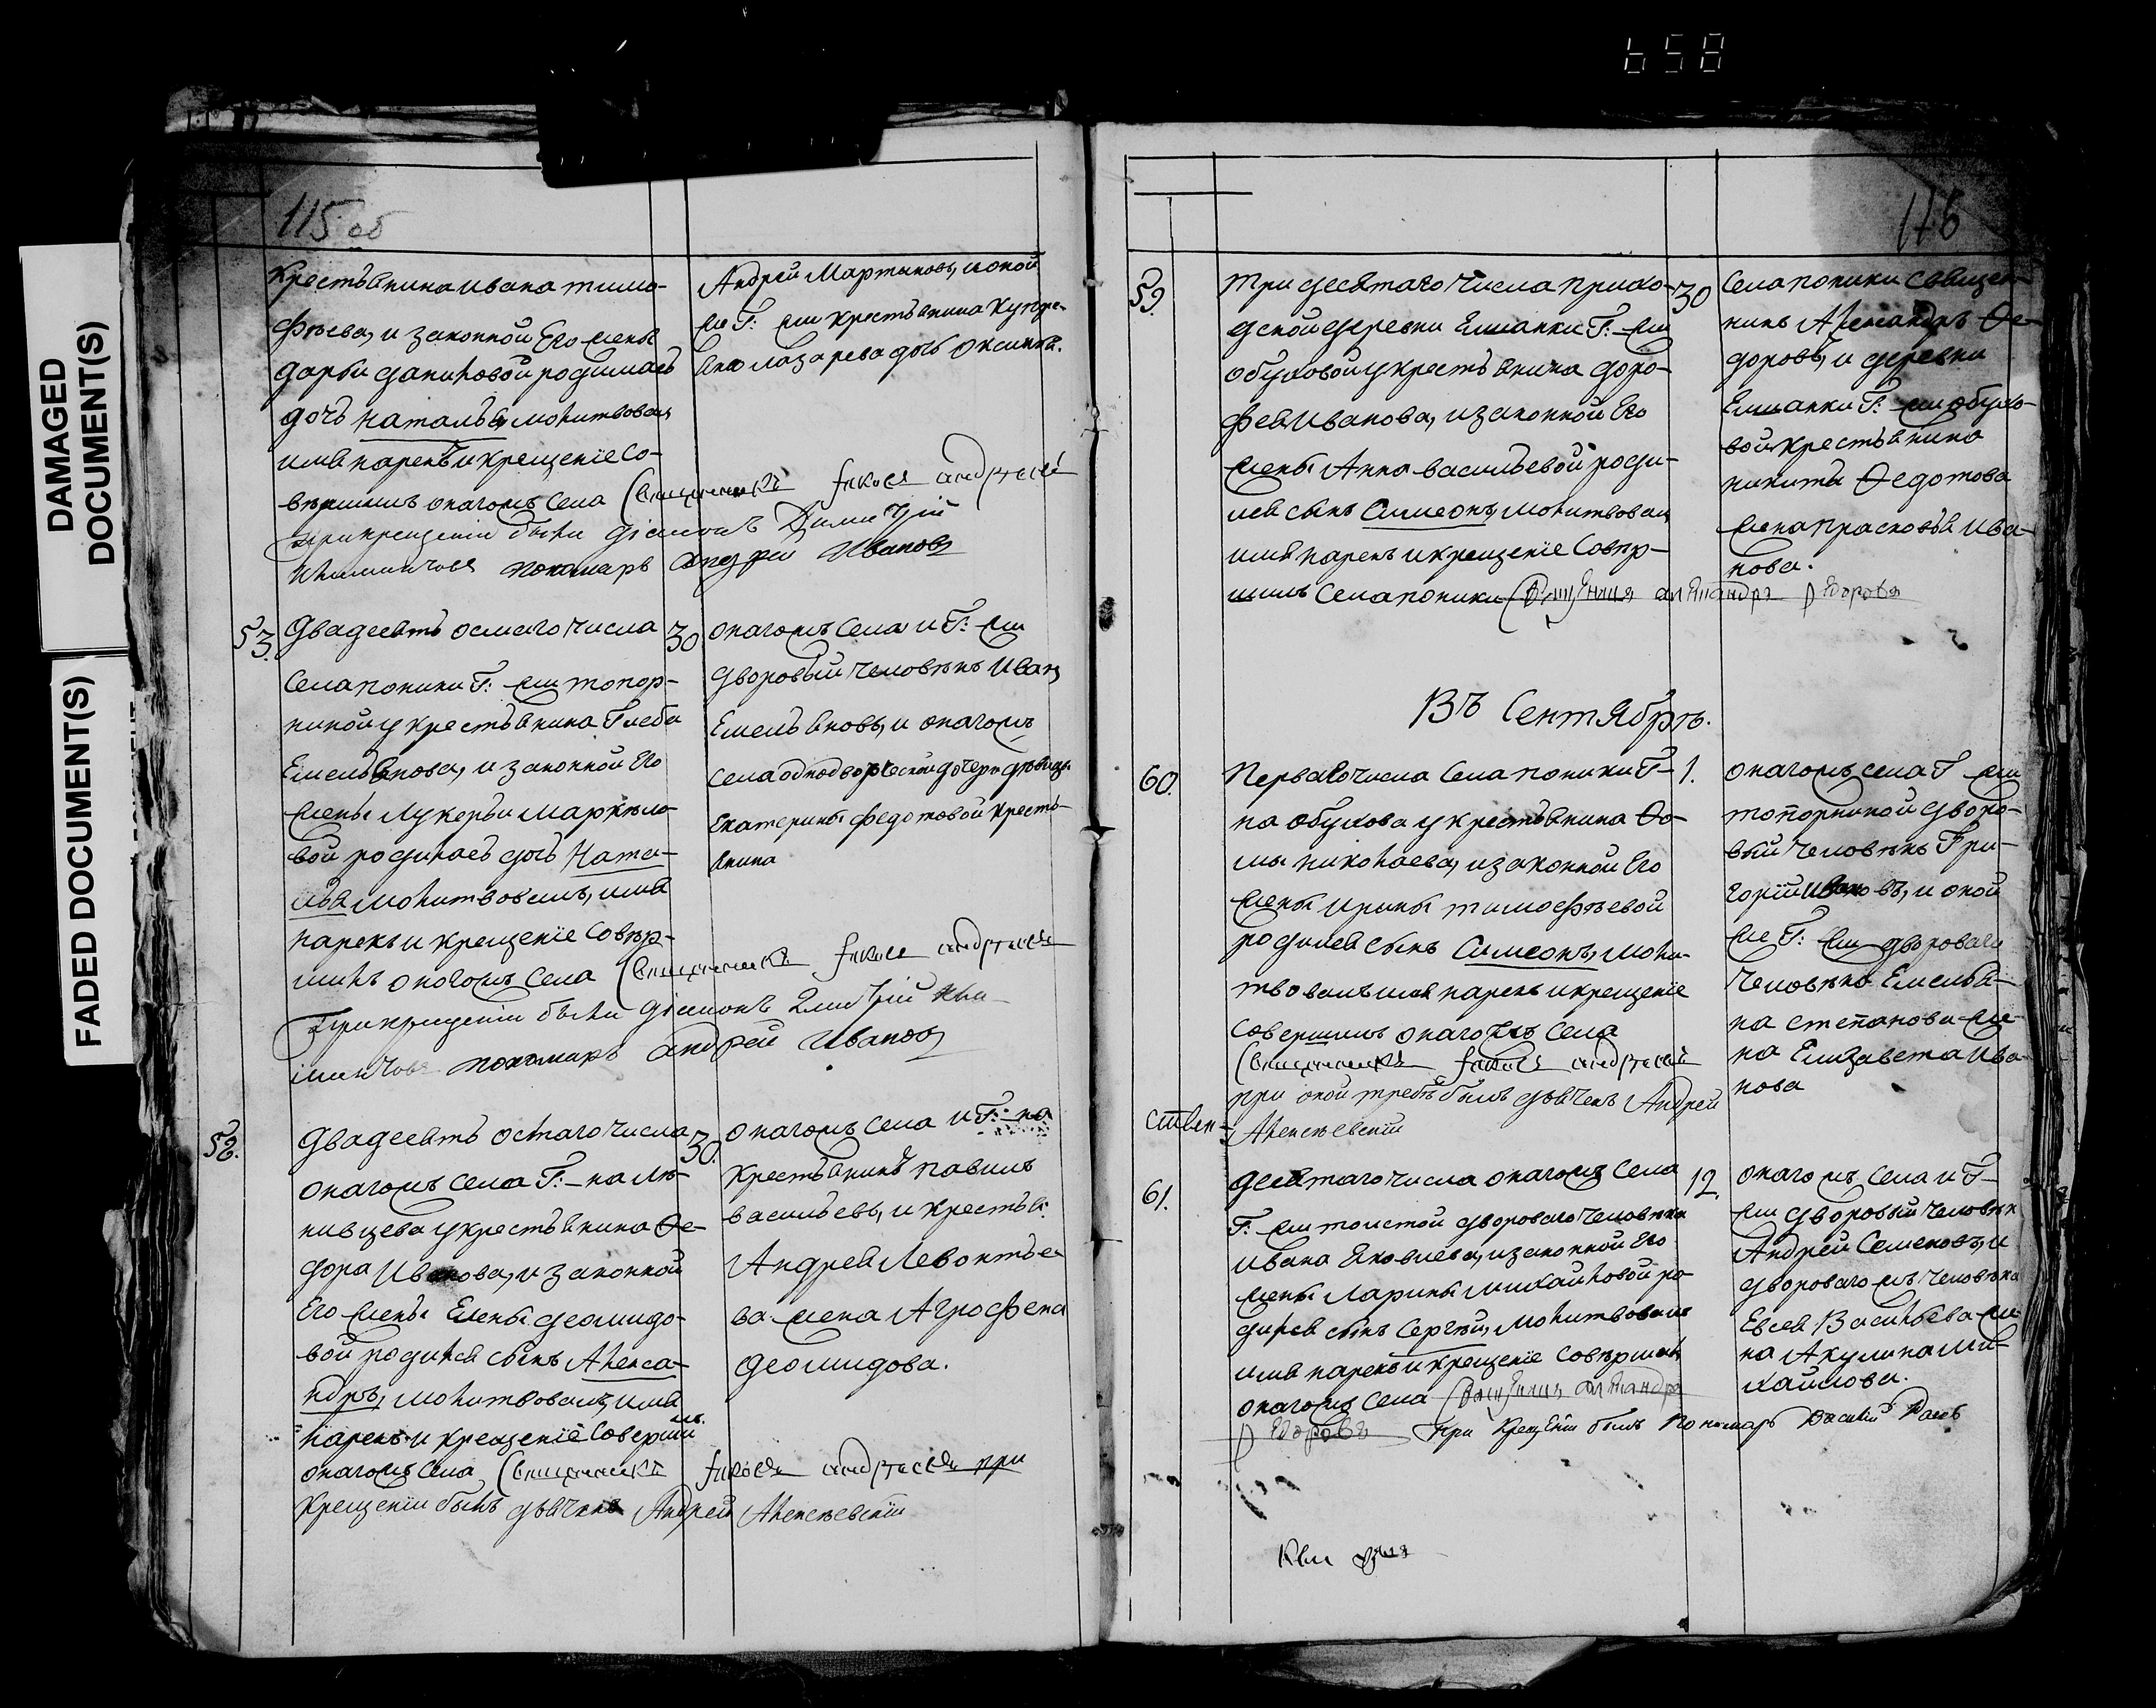 658
DAMAGED
DOCUMENT(S)
FADED DOCUMENT(S)
115 об
крестьянина ивана тимо-
фѣева, и законной Его жены
дарьи даниловой родилась
дочь наталья, молитвовал,
имя нарекъ и крещенїе со-
вершилъ онагожъ села Священникъ Iаковъ андреевъ
При крещенїи были дїаконъ Димитрїй
пономарь андрей Ивановъ
Андрей Мартыновъ, и оной
же Г: жи крестьянина Купре-
яна лазарева дочь оксинья.
53.
Двадесять осмаго числа
30
села поники Г: жи топор-
ниной у крестьянина Глеба
Емельянова, и законной Его
жены Лукерьи Маркело-
вой родилась дочь Ната-
лья молитвовалъ, имя
нарекъ и крещенїе совер-
шилъ оногожъ села Священникъ Iаковъ андреевъ
При крещенїи были дїаконъ Димитрїй
пономарь андрей Ивановъ
онагожъ села и Г: жи
дворовый человѣкъ Иванъ
Емельяновъ, и онагожъ
села однодворческой дочери дѣвицы
Екатерины федотовой кресть-
янина
58.
Двадесять осмаго числа
30.
онагожъ села Г: на лѣ-
нивцева у крестьянина Ѳе-
дора Иванова, и законной
Его жены Елены деомидо-
вой родился сынъ Алекса-
ндръ, молитвовалъ, имя
нарекъ и крещенїе совершилъ
онагожъ села Священникъ Iаковъ андреевъ при
крещенїи былъ дьячекъ Андрей Алексѣевскїй
онагожъ села и Г: на
крестьянинъ павилъ
васильевъ, и крестья:
Андрея Левонтье-
ва жена Агрофена
деомидова.
176
59.
тридесятаго числа прихо-
30
дской деревни Ешанки Г: жи
обуховой у крестьянина доро-
фея Иванова, и законной Его
жены Анна васильевой роди-
лся сынъ Симеонъ, молитвовал,
имя нарекъ и крещенїе совер-
шилъ села поники Священникъ александръ Ѳедоровъ
села поники священ-
никъ Александръ Ѳе-
доровъ, и деревни
Ешанки Г: жи обухо-
вой крестьянина
никиты Ѳедотова
жена прасковья ива-
нова.
Въ Сентябрѣ.
60.
перваго числа села поники Г-
1.
на обухова у крестьянина Ѳо-
мы николаева, и законной Его
жены ирины тимофѣевой
родился сынъ Симеонъ, моли-
твовалъ имя нарекъ и крещенїе
совершилъ онагожъ села
Священникъ Iаковъ андреевъ
при оной требѣ былъ дьячекъ Андрей
Алексѣевскїй
ствен-
онагожъ села Г жи
топорниной дворо-
вый человѣкъ Гри-
горїй Ивановъ, и оной
же Г: жи дворовага
человѣка Емелья-
на степанова же-
на Елизавета ива-
нова
61.
девятаго числа онагожъ села
12.
Г: жи толстой двороваго человѣка
ивана Яковлева, и законной Его
жены Ларины михайловой ро-
дился сынъ Сергѣй, молитвовалъ
имя нарекъ и крещенїе совершилъ
онагожъ села Священникъ александръ
Ѳедоровъ при крещенїи былъ пономарь Василїй
онагожъ села и Г-
жи дворовый человѣкъ
Андрей Семеновъ, и
двороваго жъ человѣка
Евсея Васильева же-
на Акулина ми-
хайлова.